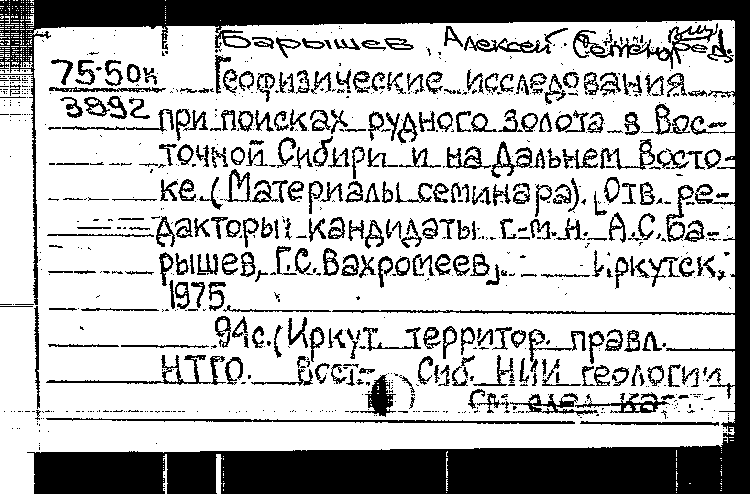 Барышев, Алексей Семёнович ред.
75-50к Геофизические исследования
3892 при поисках рудного золота в Вос-
точной Сибири и на Дальнем Восто-
ке. (Материалы семинара). [Отв. ре-
дакторы: кандидаты г.-м.н. А.С.Ба-
рышев, Г.С.Вахромеев]. Иркутск,
1975.
94с. (Иркут. территор. правл.
НТГО. Вост.- Сиб. НИИ геологии,
См. след. кар